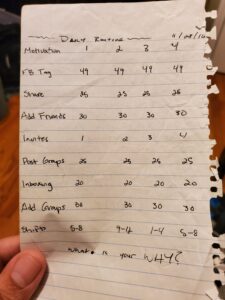 Daily Routine
Motivation 1 2 3 4
FB Tag 49 49 49 49
Share 25 25 25 25
Add Friends 30 30 30 30
Invites 1 2 3 4
Post Groups 25 25 25 25
Inboxing 20 20 20 20
Add Groups 30 30 30 30
Shifts 5-8 9-12 1-4 5-8
What is your WHY?